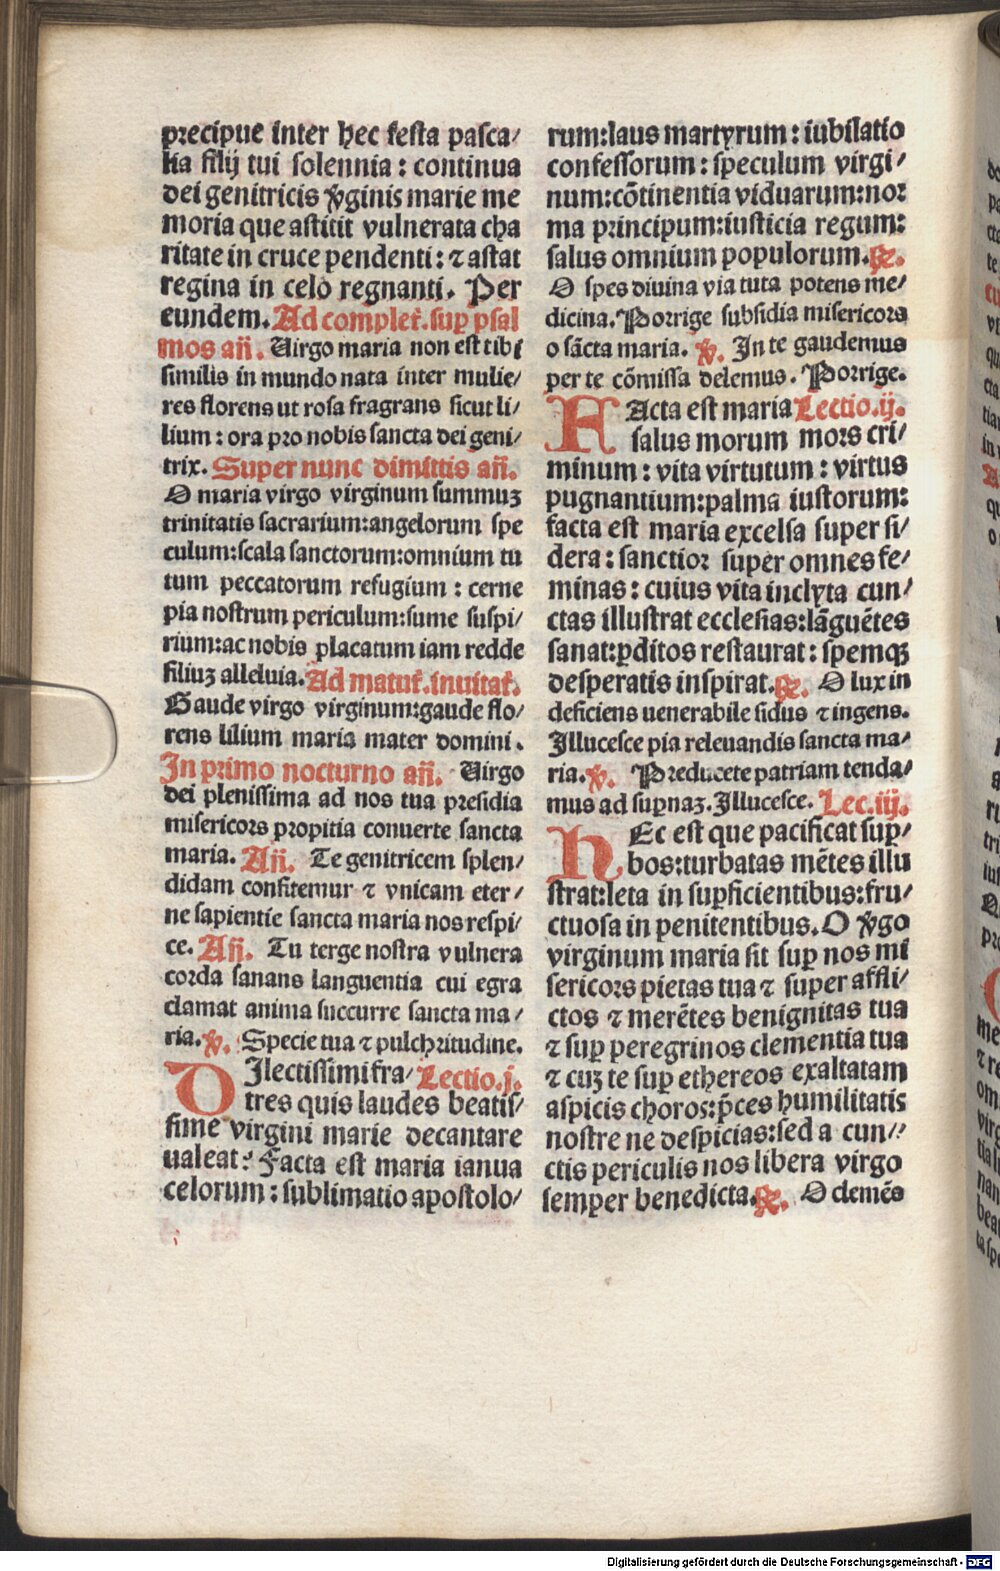 precipue inter hec festa pasca/
lia filij tui solennia : continua
dei genitricis v̾ginis marie me
moria que astitit vulnerata cha
ritate in cruce pendenti : ⁊ astat
regina in celo regnanti. Per
eundem. Ad complet̾. sup̱ psal
mos añ. Uirgo maria non est tibi
similis in mundo nata inter mulie/
res florens ut rosa fragrans sicut li/
lium : ora pro nobis sancta dei geni/
trix. Super nunc dimittis añ.
O maria virgo virginum summuꝫ
trinitatis sacrarium:angelorum spe
culum:scala sanctorum:omnium tu
tum peccatorum refugium : cerne
pia nostrum periculum:sume suspi/
rium:ac nobis placatum iam redde
filiuꝫ alleluia. Ad matut̾. inuitat̾.
Gaude virgo virginum:gaude flo/
rens lilium maria mater domini.
In primo nocturno añ. Uirgo
dei plenissima ad nos tua presidia
misericors propitia conuerte sancta
maria. Añ. Te genitricem splen/
didam confitemur ⁊ vnicam eter/
ne sapientie sancta maria nos respi/
ce. Añ. Tu terge nostra vulnera
corda sanans languentia cui egra
clamat anima succurre sancta ma/
ria. ℣. Specie tua ⁊ pulchritudine.
DIlectissimi fra/ Lectio.j.
tres quis laudes beatis/
sime virgini marie decantare
ualeat? Facta est maria ianua
celorum : sublimatio apostolo/
rum:laus martyrum : iubilatio
confessorum : speculum virgi/
num:cõtinentia viduarum:nor
ma principum:iusticia regum:
salus omnium populorum. ℞.
O spes diuina via tuta potens me/
dicina. Porrige subsidia misericors
o sãcta maria. ℣. In te gaudemus
per te cõmissa delemus. Porrige.
FActa est maria Lectio.ij.
salus morum mors cri/
minum : vita virtutum : virtus
pugnantium:palma iustorum:
facta est maria excelsa super si/
dera : sanctior super omnes fe/
minas : cuius vita inclyta cun/
ctas illustrat ecclesias:lãguẽtes
sanat:ꝑditos restaurat : spemqꝫ
desperatis inspirat. ℞. O lux in
deficiens uenerabile sidus ⁊ ingens.
Illucesce pia releuandis sancta ma/
ria. ℣. Preducete patriam tenda/
mus ad sup̱naꝫ. Illucesce. Lec.iij.
HEc est que pacificat sup̱/
bos:turbatas mẽtes illu
strat:leta in sup̱ficientibus:fru/
ctuosa in penitentibus. O v̾go
virginum maria sit sup̱ nos mi
sericors pietas tua ⁊ super affli/
ctos ⁊ merẽtes benignitas tua
⁊ sup̱ peregrinos clementia tua
⁊ cuꝫ te sup̱ ethereos exaltatam
aspicis choros:p̃ces humilitatis
nostre ne despicias:sed a cun//
ctis periculis nos libera virgo
semper benedicta. ℞. O clemẽs
Digitalisierung gefördert durch die Deutsche Forschungsgemeinschaft - DFG